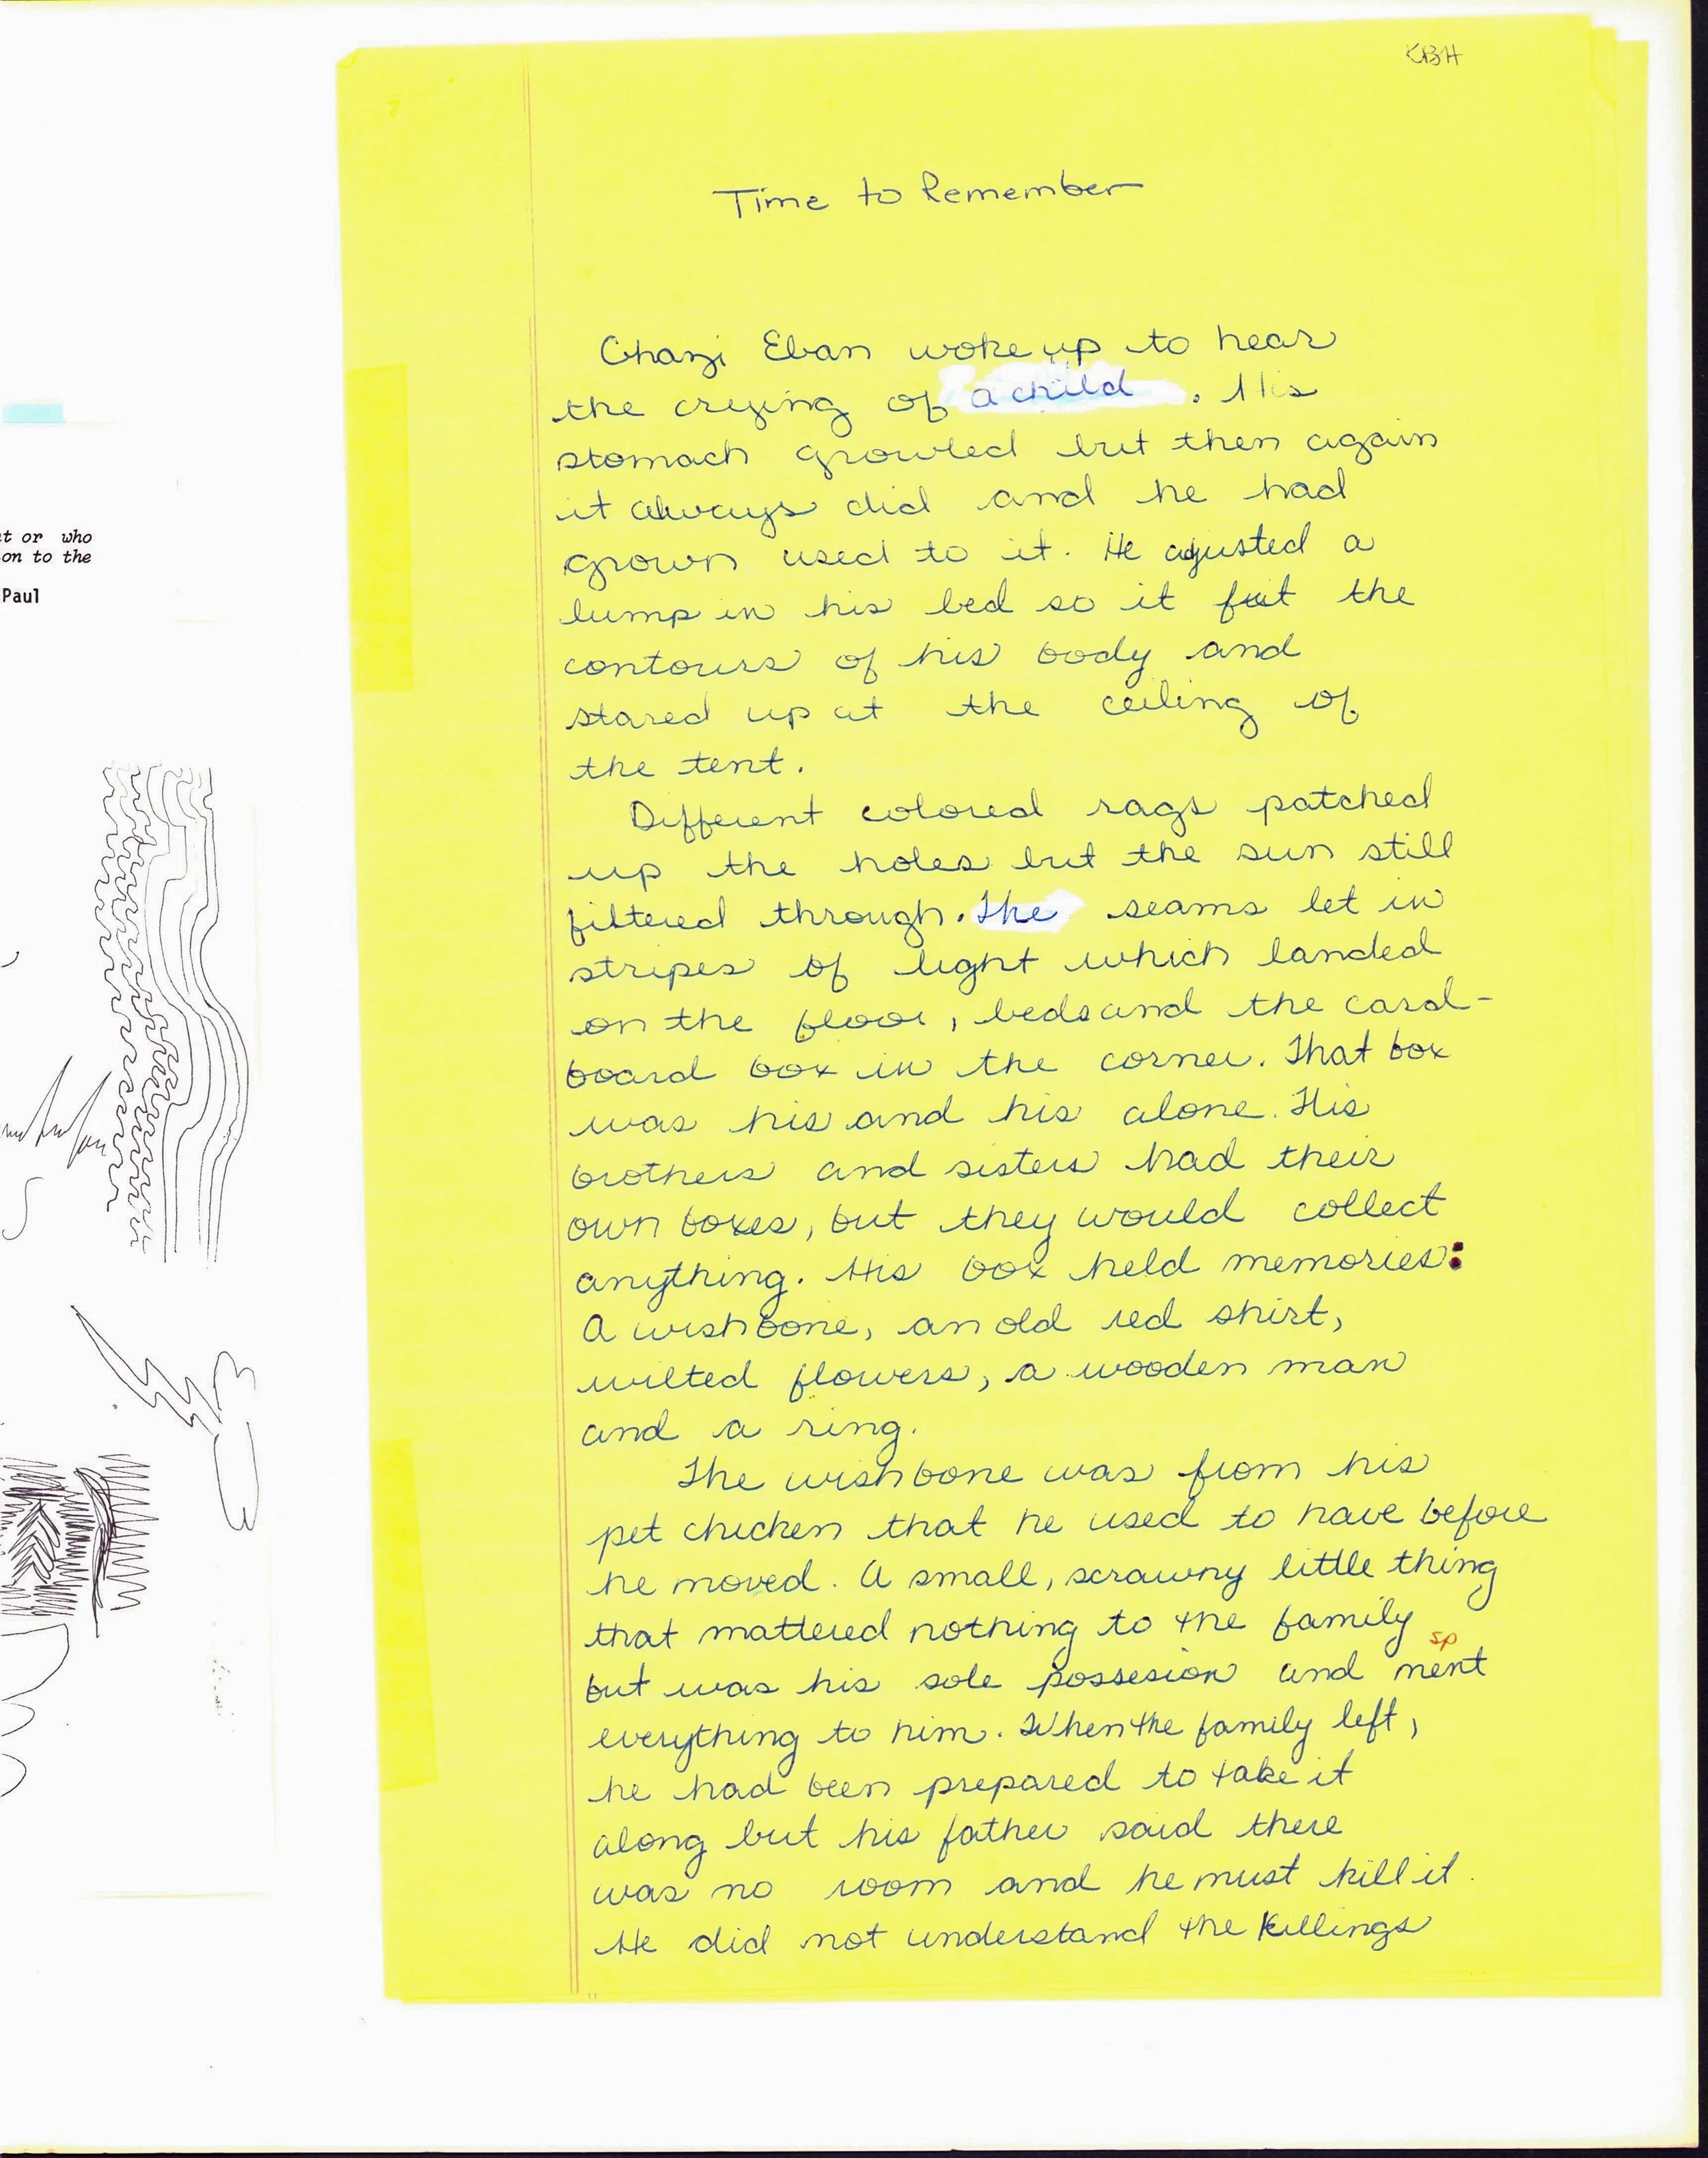 KBH
Time to Remember
Ghazi Eban woke up to hear
the crying of a child. His
stomach growled but then again
it always did and he had
grown used to it. He ajusted a
lump in his bed so it fit the
contours of his body and
stared up at the ceiling of
the tent.
Different colored rags patched
up the holes but the sun still
filtered through. The seams let in
stripes of light which landed
on the floor, beds and the card-
board box in the corner. That box
was his and his alone. His
brothers and sisters had their
own boxes, but they would collect
anything. His box held memories:
A wishbone, an old red shirt,
wilted flowers, a wooden man
and a ring.
The wishbone was from his
pet chicken that he used to have before
he moved. A small, scrawny little thing
that mattered nothing to the family
sp
but was his sole possesion and ment
everything to him. When the family left,
he had been prepared to take it
along but his father said there
was no room and he must kill it.
He did not understand the killings
t or who
on to the
Paul